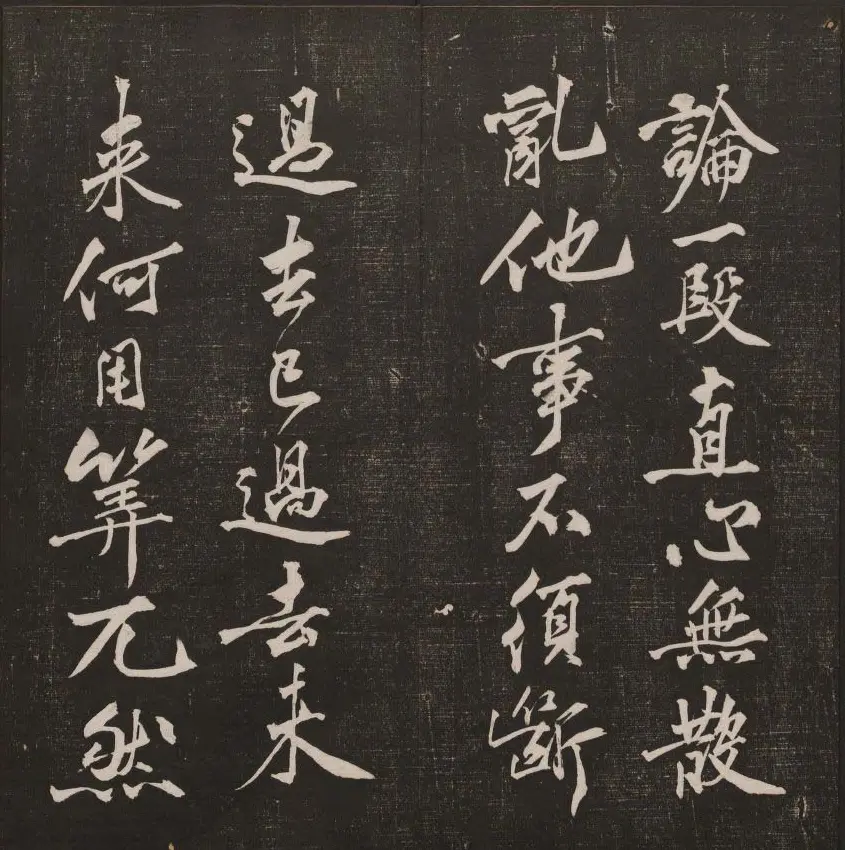 論一段直心無散
亂他事不須斷
過去已過去未
来何用筭兀然